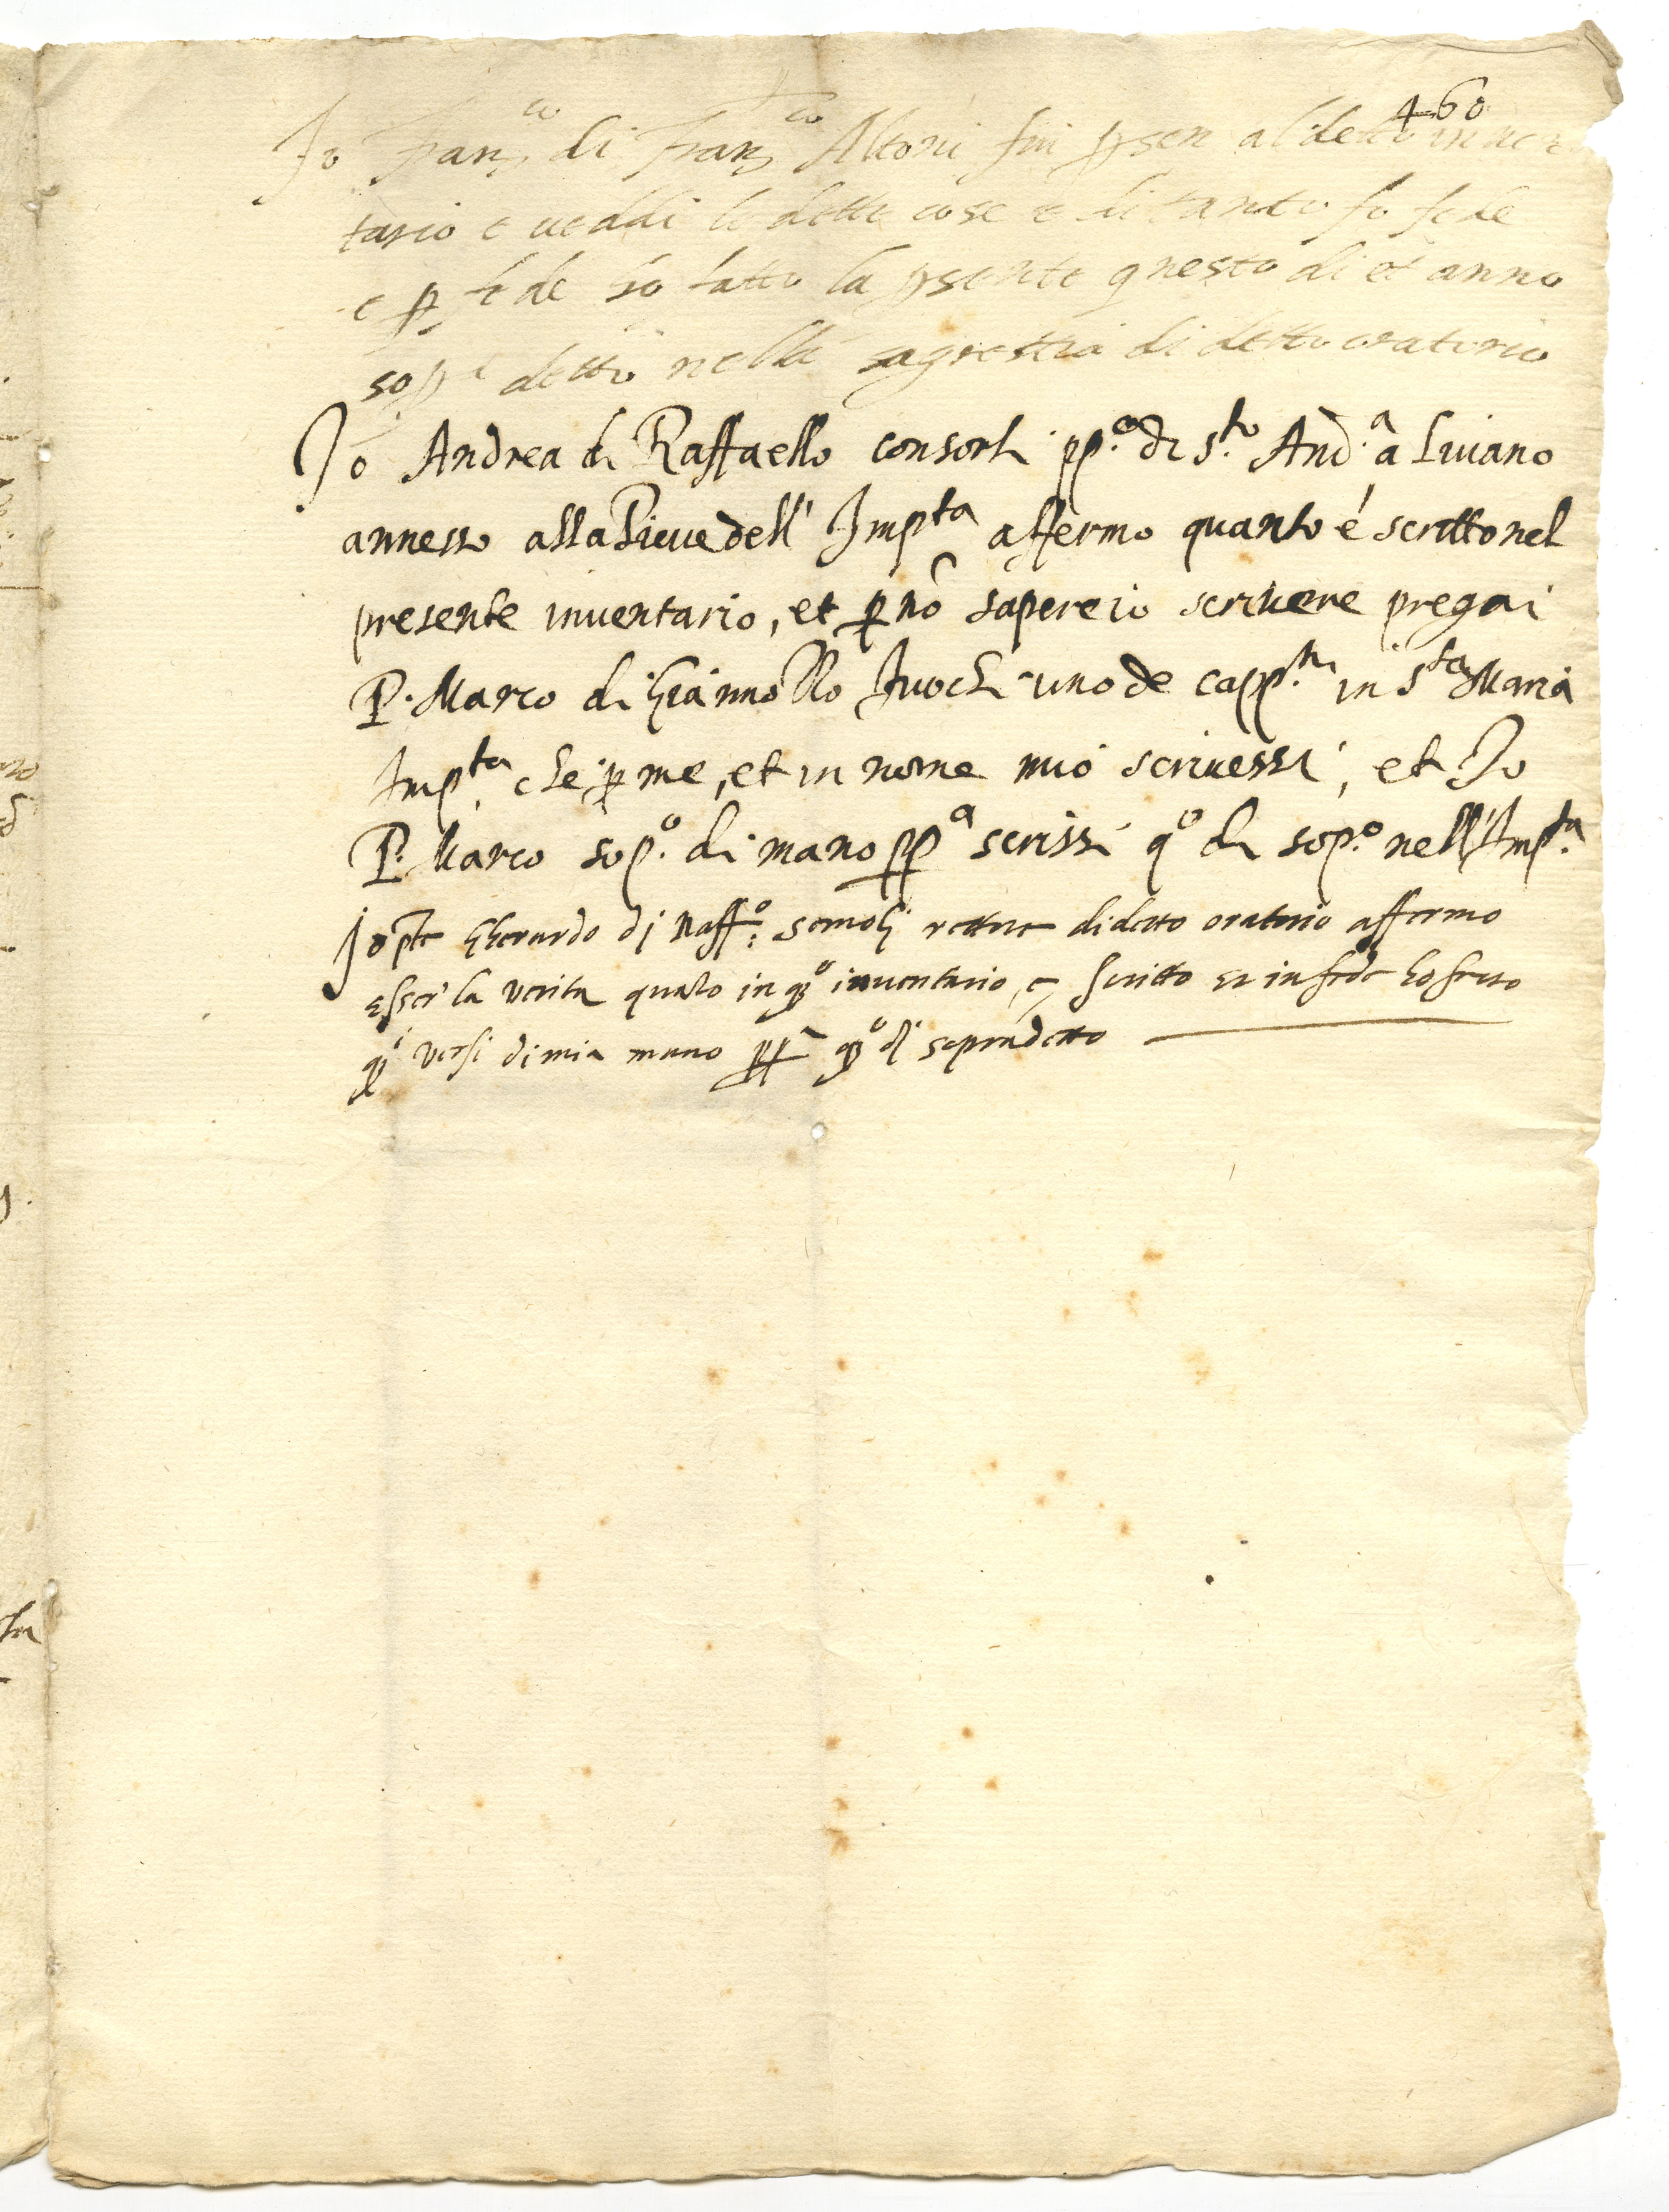 460
Io Fran.co di Fran.co Altoni fui p̱sen al detto inuen
tario e ueddi le dette cose e di tanto fo fede
e ꝑ fede ho fatto la p̱sente questo dì et anno
sop.a detto nella sagrestia di detto oratorio
Io Andrea di Raffaello Consorti pp.o di S.to And.a a Luiano
annesso alla Pieue dell' Imp.ta affermo quanto é scritto nel
presente inuentario, et ꝑ nõ sapere io scriuere pregai
P. Marco di Giannollo Fuochi uno de capp.ni in S.ta Maria
Imp.ta che ꝑ me, et in nome mio scriuessi, et Io
P. Marco sop.o di mano pp.a scrissi q.o dì sop.o nell' Imp.ta
Io pte Gherardo di Raff.o Semoli rettore di detto oratorio affermo
esser la verita quato in q.o inuentario e scritto et in fede ho fatto
q.o versi di mia mano pp.a q.o dì sopradetto